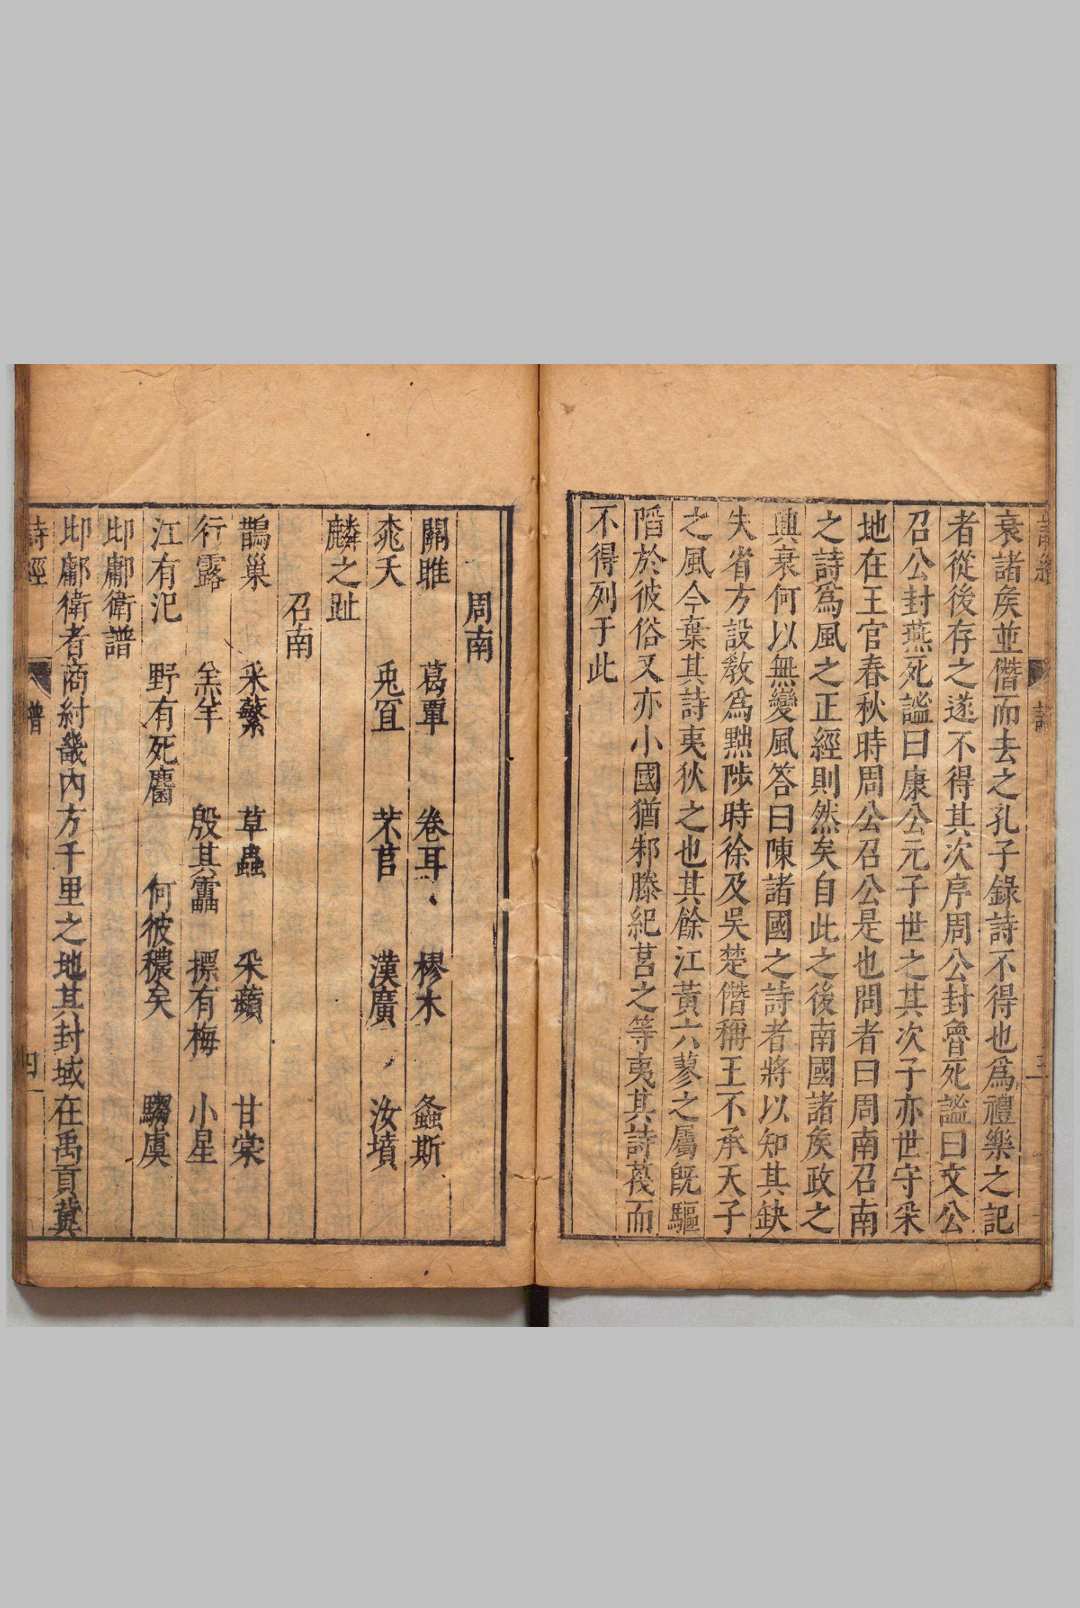 衰諸矦並僭而去之孔子錄詩不得也爲禮樂之記
者從後存之遂不得其次序周公封魯死謚曰文公
召公封燕死謚曰康公元子世之其次子亦世守采
地在王官春秋時周公召公是也問者曰周南召南
之詩爲風之正經則然矣自此之後南國諸矦政之
興衰何以無變風答曰陳諸國之詩者將以知其缺
失省方設敎爲黜陟時徐及吳楚僭稱王不承天子
之風今棄其詩夷狄之也其餘江黃六蓼之屬旣驅
陷於彼俗又亦小國猶邾滕紀莒之等夷其詩蔑而
不得列于此
周南
關雎 葛覃 卷耳 樛木 螽斯
桃夭 兎罝 芣苢 漢廣 汝墳
麟之趾
召南
鵲巢 采蘩 草蟲 采蘋 甘棠
行露 羔羊 殷其靁 摽有梅 小星
江有汜 野有死麕 何彼穠矣 騶虞
邶鄘衛譜
邶鄘衛者商紂畿內方千里之地其封域在禹貢冀
詩經 譜 四